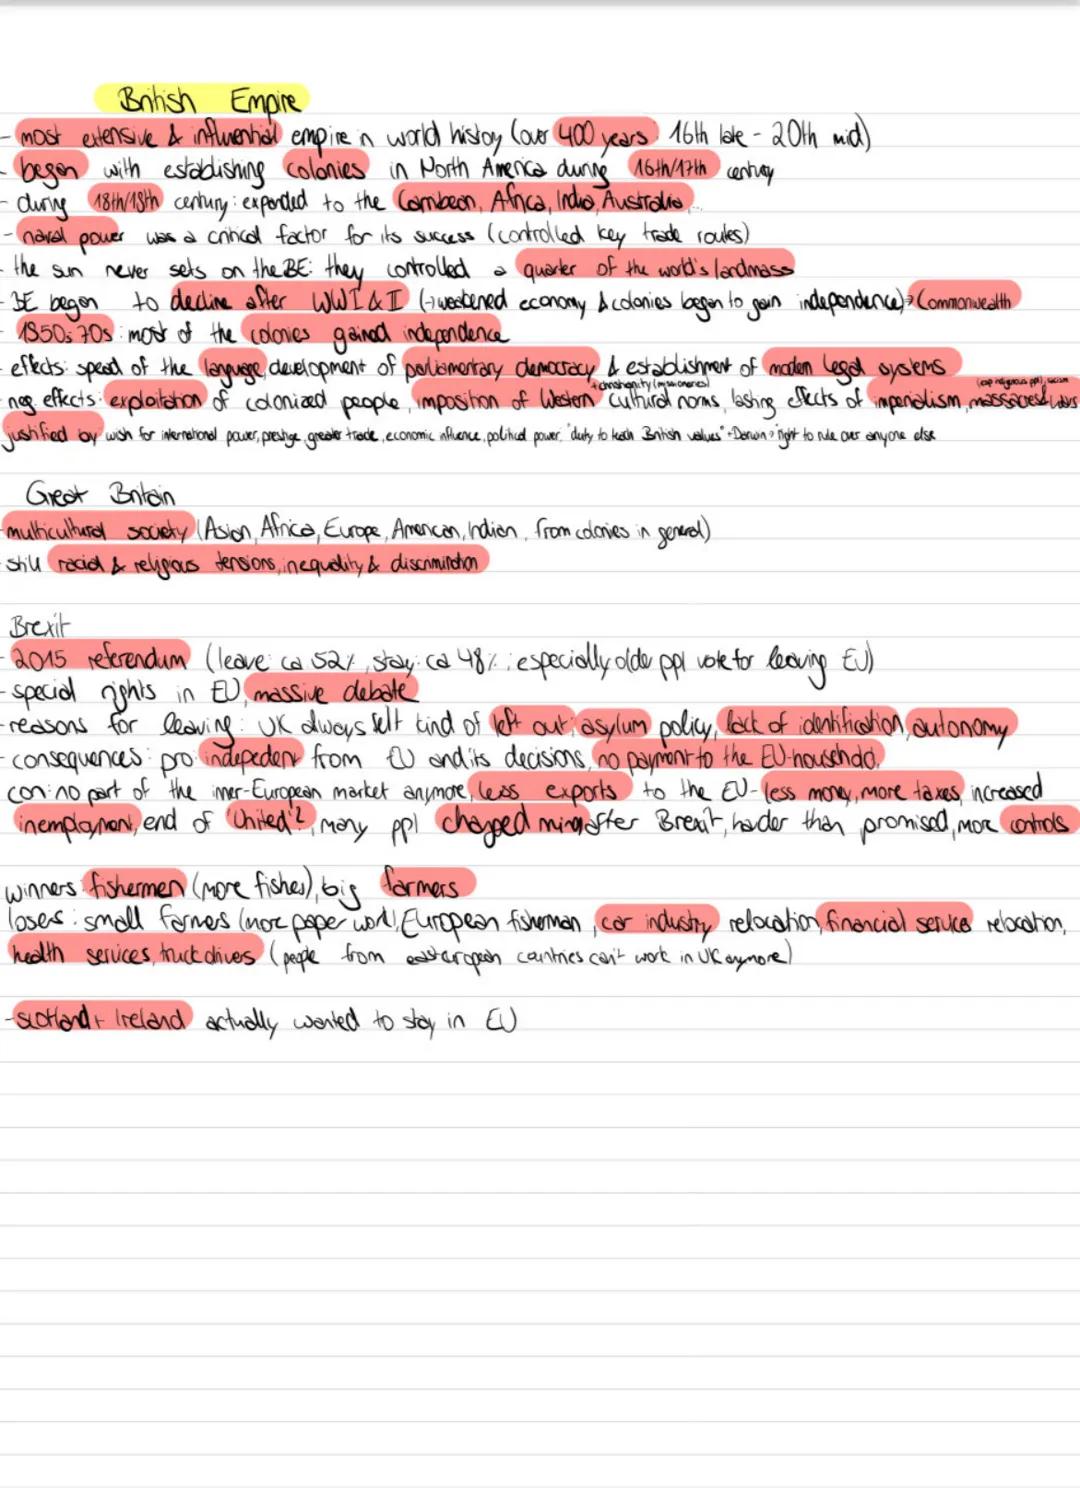 British Empire
- most extensive & influential empire in world history (over 400 years 16th late - 20th mid)
- began with establishing colonies in North America during 16th/17th century
- during 18th/18th century: expanded to the Carribean, Africa, India, Australia,...
- naval power was a critical factor for its success (controlled key trade routes)
- the sun never sets on the BE: they controlled a quarter of the world's landmass
- BE began to decline after WWI & II (→ weakened economy & colonies began to gain independence) → Commonwealth
- 1950s 70s: most of the colonies gained independence
- effects: spead of the language, development of parliamentary democracy & establishment of modern legal systems
+ christianity (missionaries) (esp indigenous ppl), racism
- neg. effects: exploitation of colonized people, imposition of Western cultural norms, lasting effects of imperialism, massacres &
justified by wish for international power, prestige, greater trade, economic influence, political power, "duty to teach British values" + Darwin → right to rule over anyone else
Great Britain
- multicultural society (Asian, Africa, Europe, American, Indian, from colonies in general)
- still racial & religious tensions, inequality & discrimination
Brexit
- 2015 referendum (leave: ca 52%, stay: ca 48%; especially older ppl vote for leaving EU)
- special rights in EU, massive debate
- reasons for leaving: UK always felt kind of left out, asylum policy, lack of identification, autonomy
- consequences: pro: indepedent from EU and its decisions, no payment to the EU-household,
con: no part of the inner-European market anymore, less exports to the EU - less money, more taxes, increased
inemployment, end of "United"?, many ppl changed ming after Brexit, harder than promised, more controls
winners: fishermen (more fishes), big farmers
losers: small farmers (more paper work), European fisherman, car industry relocation, financial service relocation,
health services, truck drivers (people from easteuropean countries can't work in UK anymore)
- Scotland + Ireland actually wanted to stay in EU